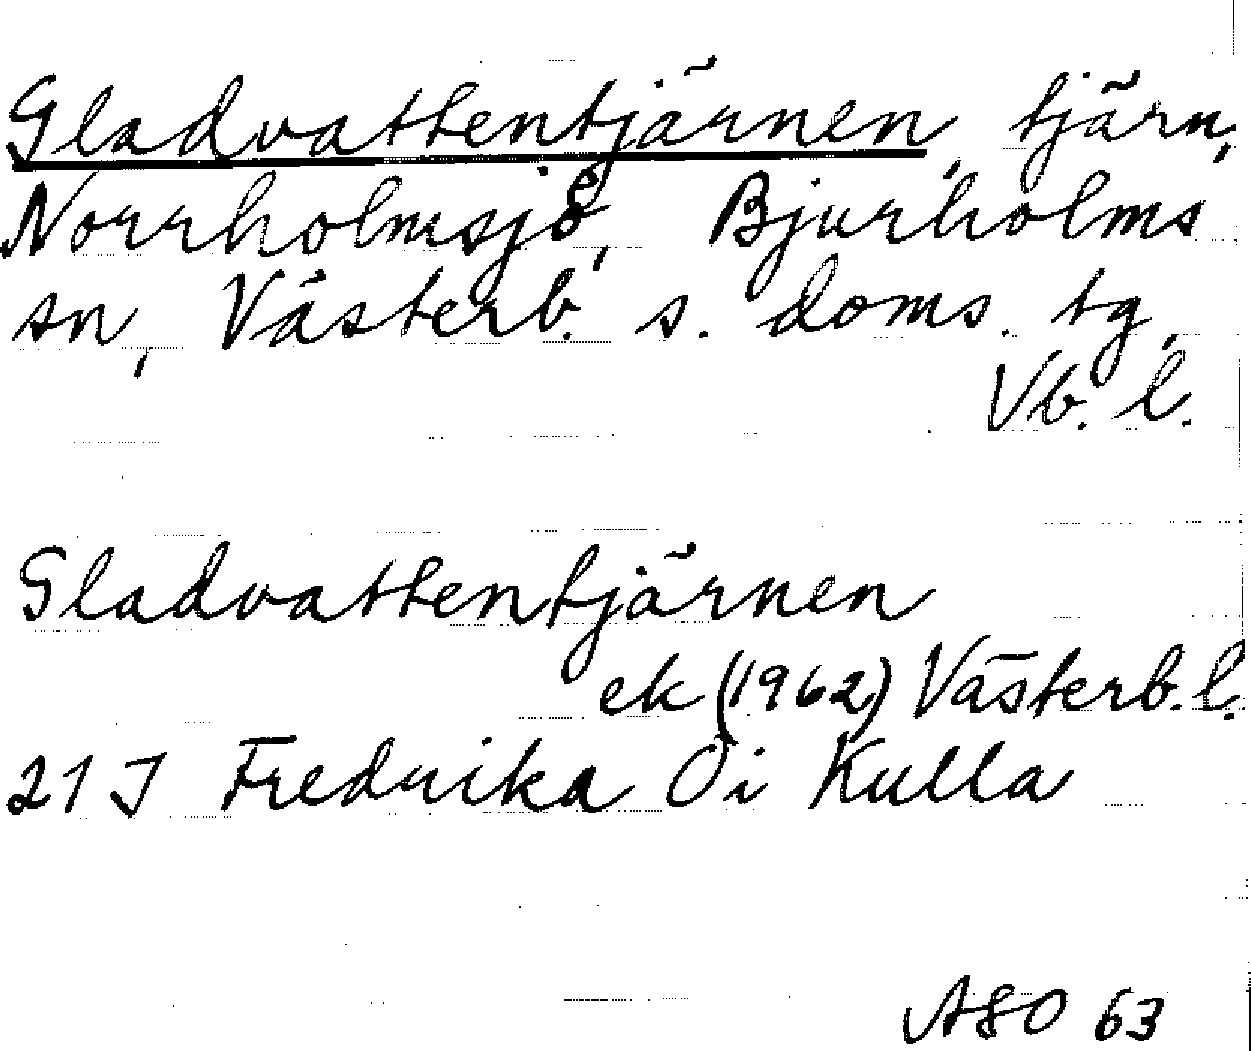 Gladvattentjärnen, tjärn,
Norrholmsjö, Bjurholms
sn, Västerb. s. doms. tg,
Vb. l.
Gladvattentjärnen
ek (1962) Västerb. l.
21 J Fredrika Öi Kulla
ASO 63